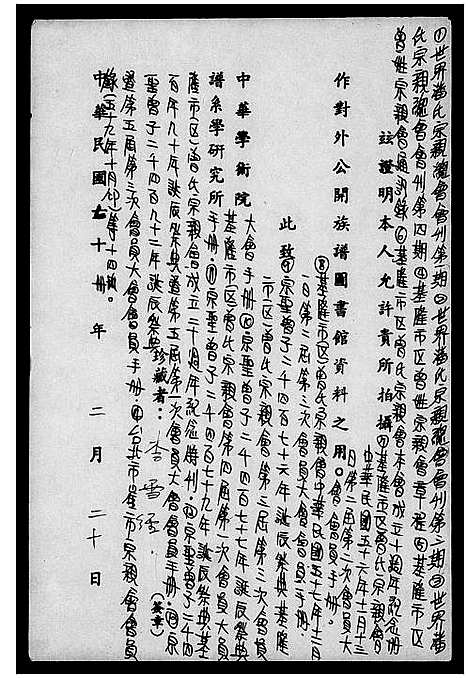 ①世界潘氏宗親總會會刊第一期②世界潘氏宗親總會會刊第二期③世界潘
氏宗親總會會刊第四期④基隆市區曾姓宗親會章程⑤基隆市區
曾姓宗親會通訊錄⑥基隆市區曾氏宗親會本會成立十週年紀念冊
茲證明本人允許貴所拍攝⑦基隆市區曾氏宗親會
中華民國五十六年十一月十三
日第二屆第一次會員大
作對外公開族譜圖書館資料之用。會會員手冊。
⑧基隆市區曾氏宗親會中華民國五十七年十二月
一日第二屆第二次會員大會會員手冊。
此致⑨宗聖曾子二千四百七十六年誕辰祭典基隆
市區曾氏宗親會第三屆第三次會員
大會手冊⑩宗聖曾子二千四百七十七年誕辰祭典
中華學術院
基隆市區曾氏宗親會第四屆第一次會員大會
譜系學研究所
手冊。⑪宗聖曾子二千四百七十九年誕辰祭典基
隆市區曾氏宗親會成立二十週年紀念特刊。⑫宗聖曾子二千四
百八十年誕辰祭典暨第五屆第一次會員大會會員手冊。⑬宗
聖曾子二千四百八十二年誕辰祭典
珍藏者：李雪
(簽章)
暨第五屆第三次會員大會會員手冊。⑭台北市
宗親會會員
錄(五十九年十月印)第十四
中華民國七十 年 二月 二十日